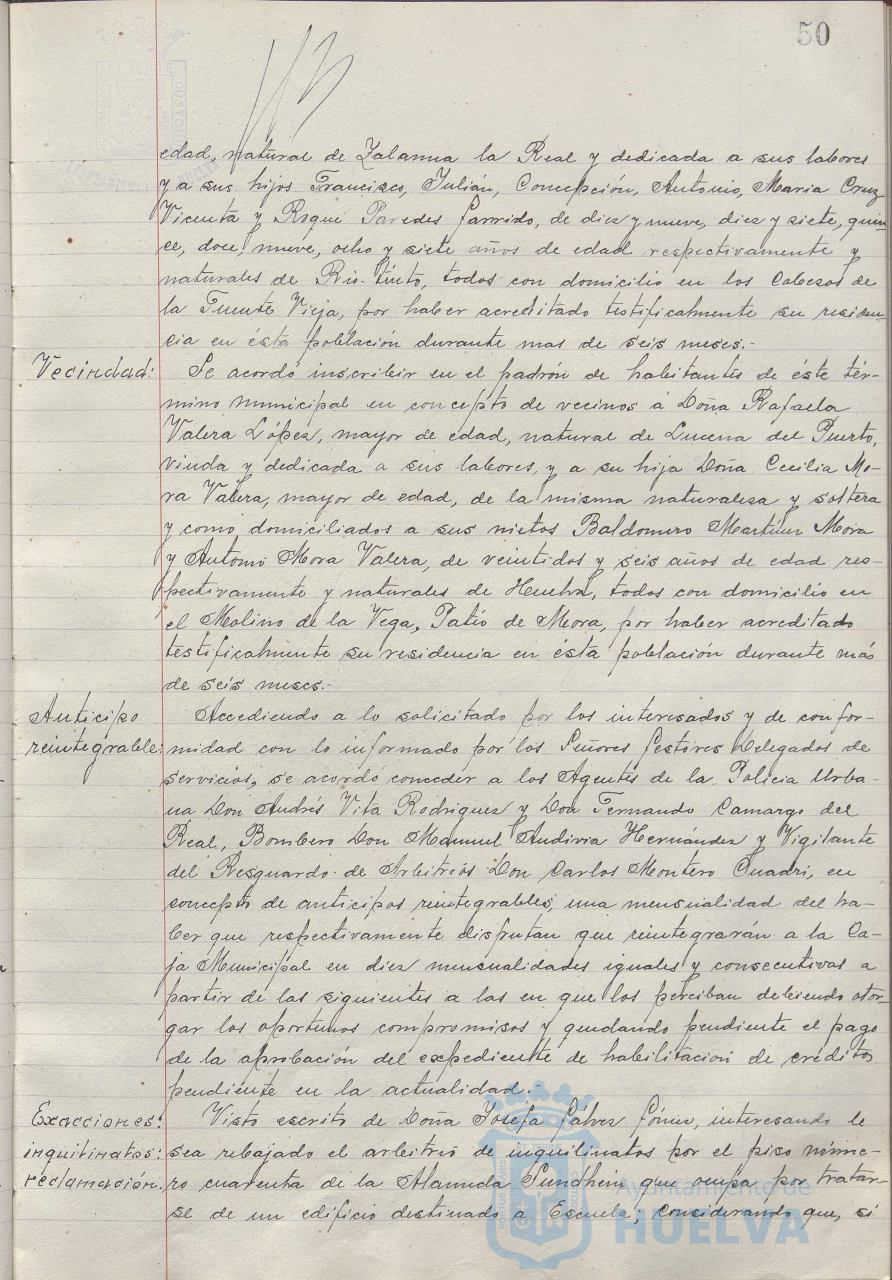 50
edad, natural de Zalamea la Real y dedicada a sus labores
y a sus hijos Francisco, Julián, Concepción, Antonio, Maria Cruz
Vicenta y Roque Paredes Garrido, de diez y nueve, diez y siete, quin-
ce, doce, nueve, ocho y siete años de edad respectivamente y
naturales de Rio-tinto, todos con domicilio en los Cabezos de
la Fuente Vieja, por haber acreditado testificalmente su residen
cia en ésta población durante mas de seis meses.-
Vecindad: Se acordó inscribir en el padrón de habitantes de éste tér-
mino municipal en concepto de vecinos á Doña Rafaela
Valera López, mayor de edad, natural de Lucena del Puerto,
viuda y dedicada a sus labores, y a su hija Doña Cecilia Mo-
ra Valera, mayor de edad, de la misma naturaleza y soltera
y como domiciliados a sus nietos Baldomero Martínez Mora
y Antonio Mora Valera, de veintidos y seis años de edad res-
pectivamente y naturales de Huelva, todos con domicilio en
el Molino de la Vega, Patio de Mora, por haber acreditado
testificalmente su residencia en ésta población durante más
de seis meses.-
Anticipo Accediendo a lo solicitado por los interesados y de confor-
reintegrable: midad con lo informado por los Señores Gestores Delegados de
servicios, se acordó conceder a los Agentes de la Policia Urba-
na Don Andrés Vita Rodriguez y Don Fernando Camargo del
Real, Bombero Don Manuel Andivia Hernández y Vigilante
del Resguardo de Arbitrios Don Carlos Montero Cuadri, en
concepto de anticipos reintegrables, una mensualidad del ha-
ber que respectivamente disfrutan que reintegrarán a la Ca-
ja Municipal en diez mensualidades iguales y consecutivas a
partir de las siguientes a las en que los perciban debiendo otor-
gar los oportunos compromisos y quedando pendiente el pago
de la aprobación del expediente de habilitación de créditos
pendiente en la actualidad.-
Exacciones: Visto escrito de Doña Josefa Gálvez Gómez, interesando le
inquilinatos: sea rebajado el arbitrio de inquilinatos por el piso núme-
reclamación. ro cuarenta de la Alameda Sundhein que ocupa por tratar-
se de un edificio destinado a Escuela; considerando que, si
Ayuntamiento de
HUELVA